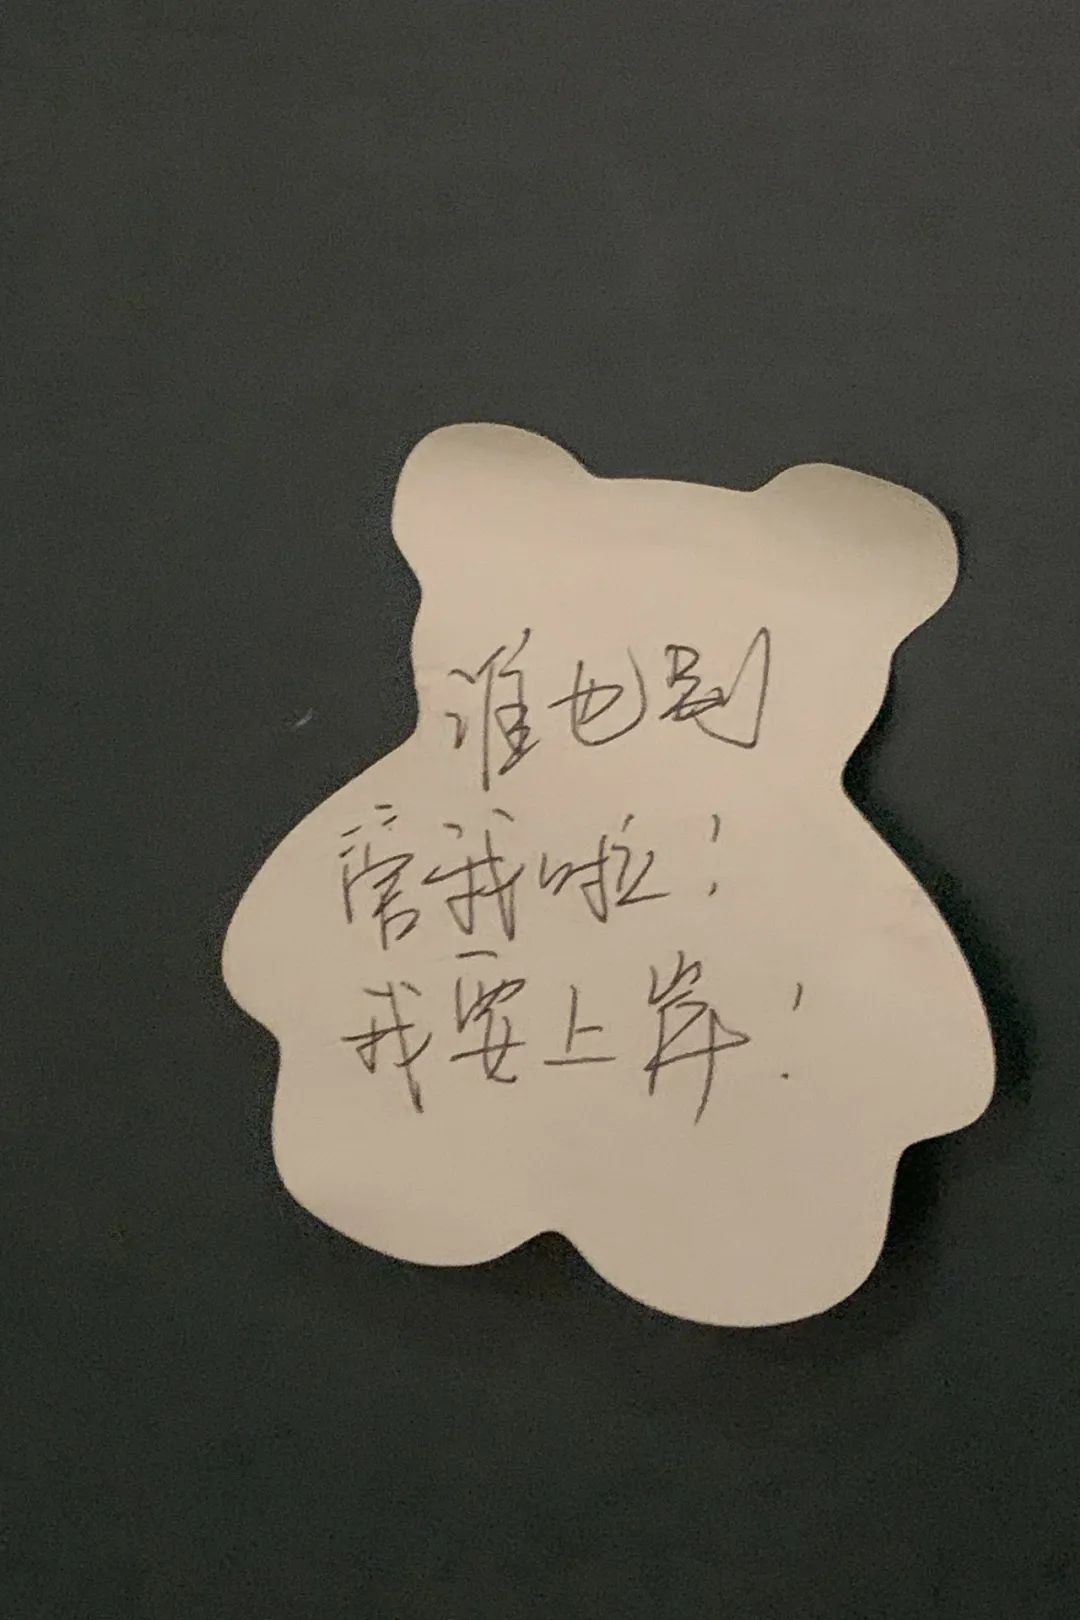 谁也别
管我啦！
我要上岸！